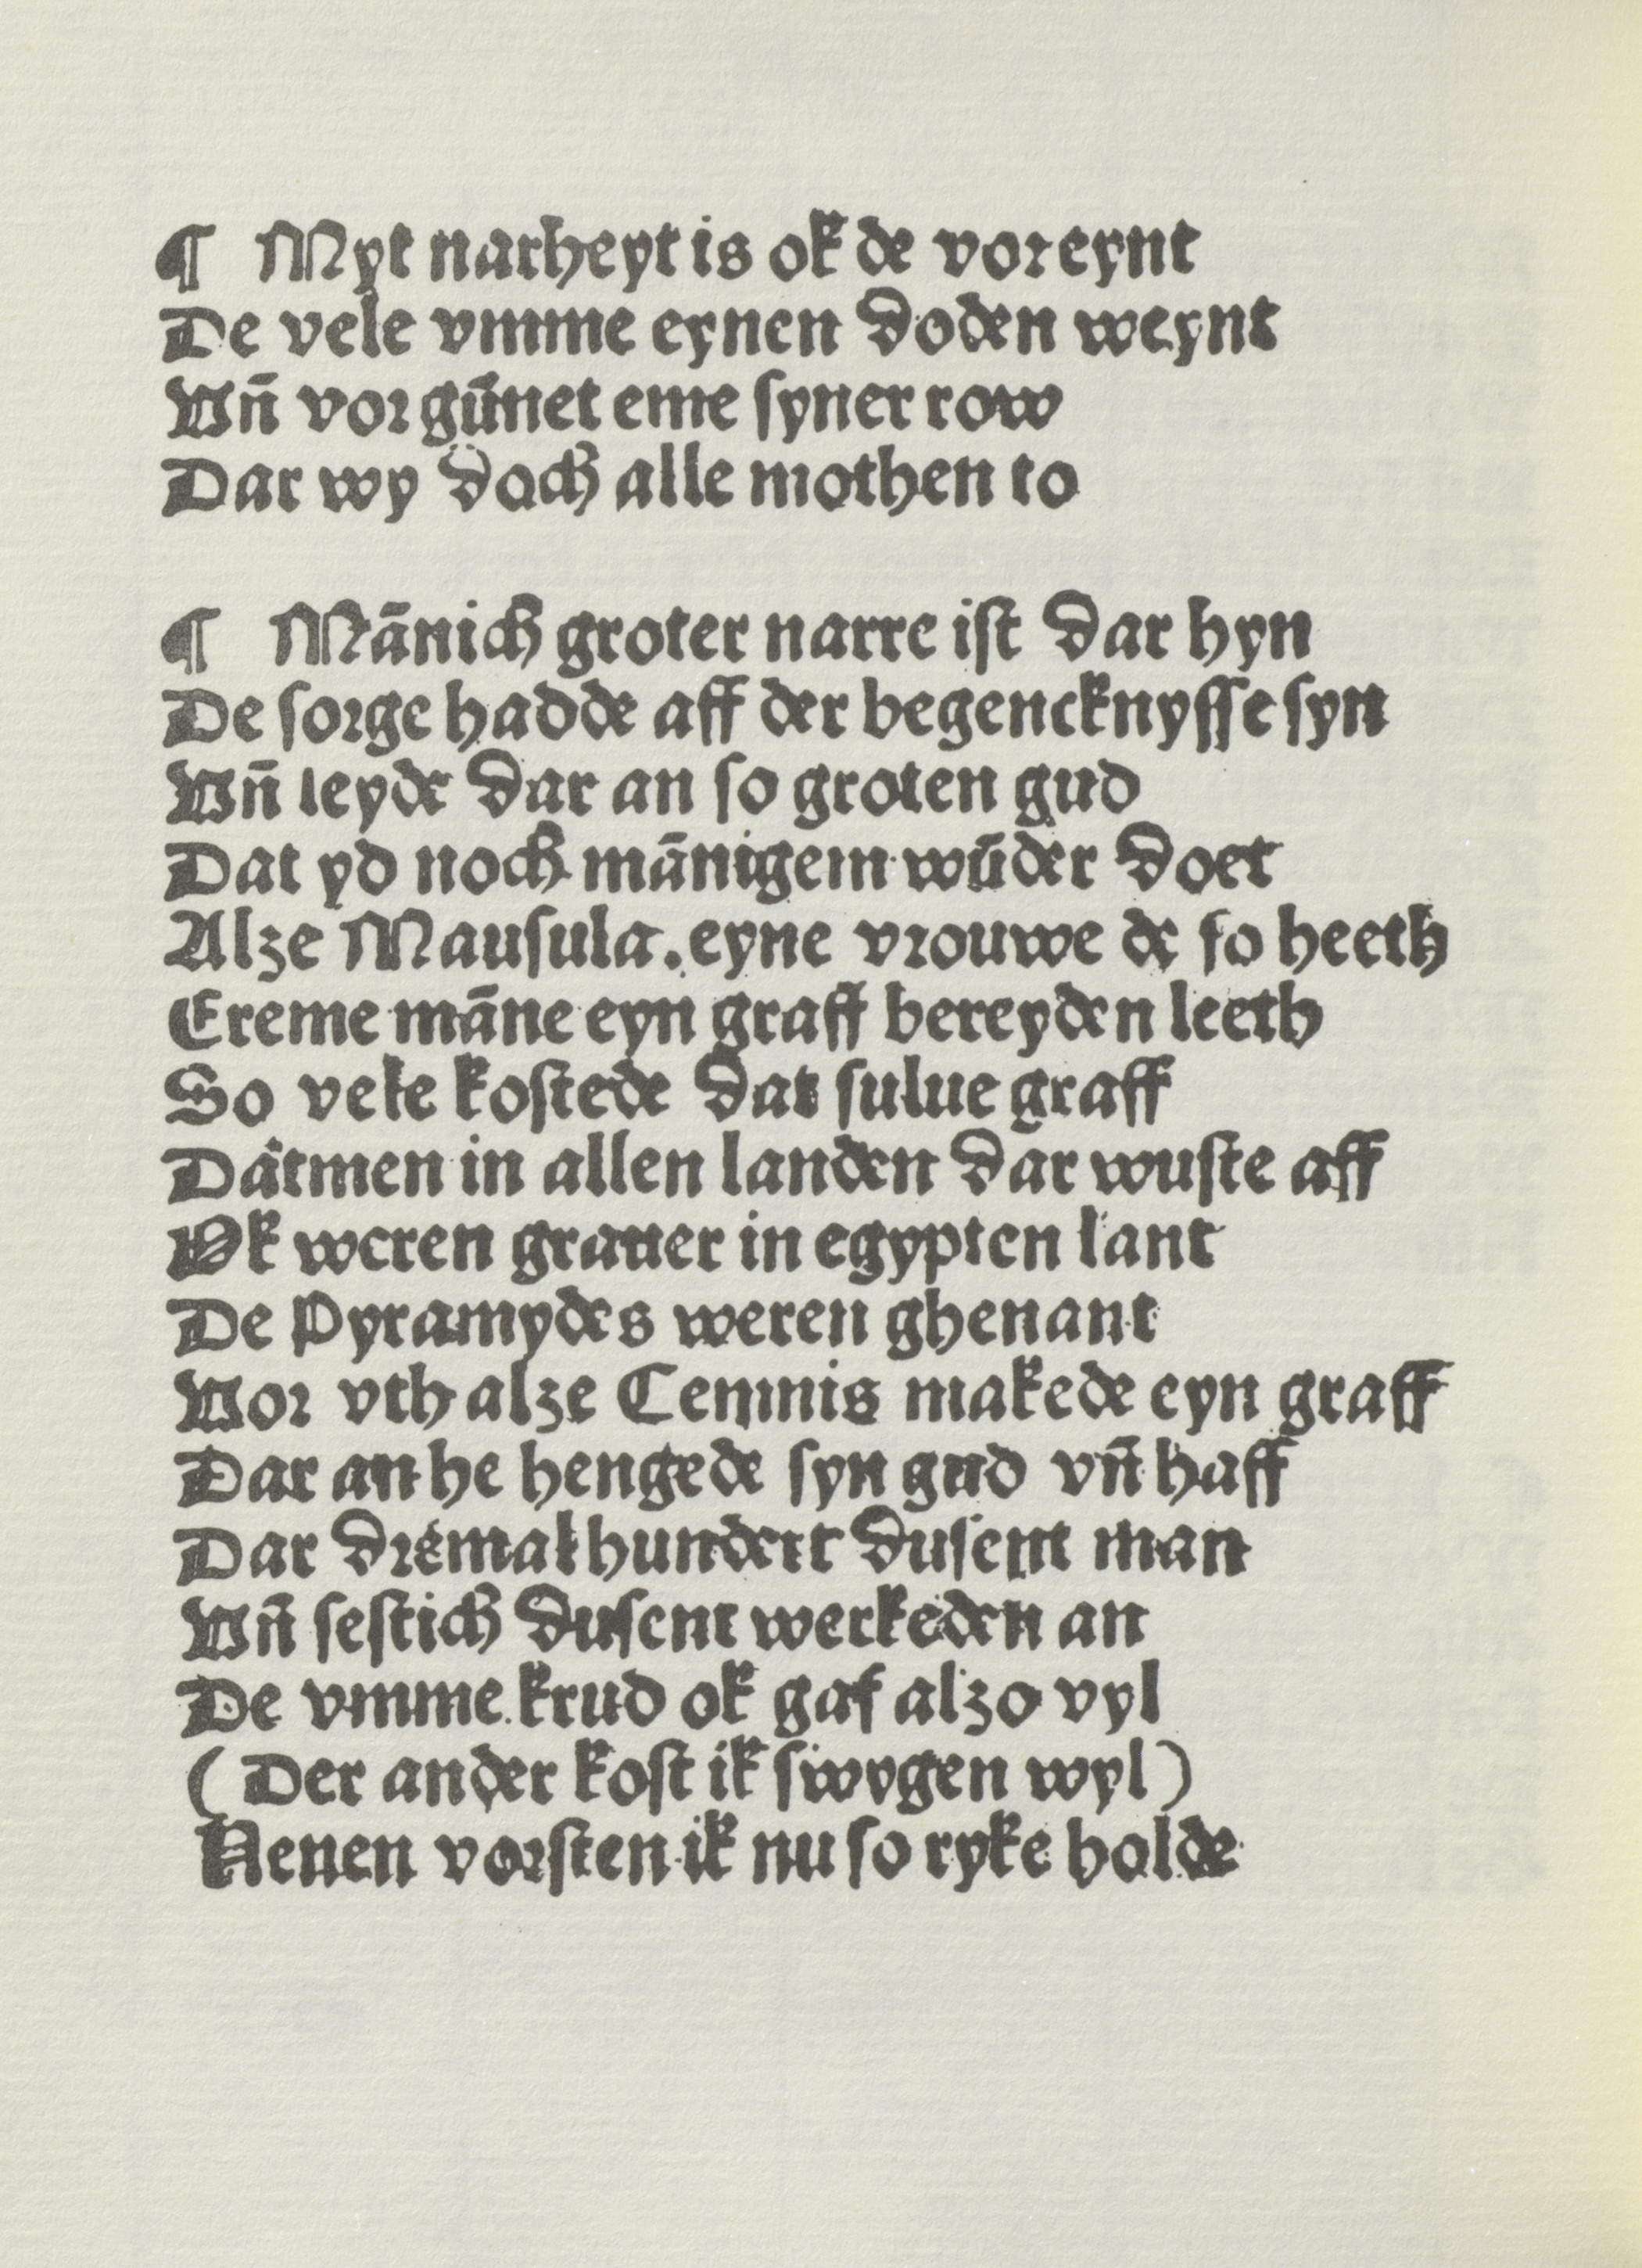 ¶ Myt narheyt is ok de voreynt
De vele vmme eynen doden weynt
Vn̄ vorgūnet eme syner row
Dar wy doch alle mothen to
¶ Mānich groter narre ist dar hyn
De sorge hadde aff der begencknysse syn
Vn̄ leyde dar an so groten gud
Dat yd noch mānigem wūder doet
Alze Mausula. eyne vrouwe de so heeth
Ereme māne eyn graff bereyden leeth
So vele kostede dat sulue graff
Datmen in allen landen dar wuste aff
Ok weren grauer in egypten lant
De Pyramydes weren ghenant
Vor vth alze Cemnis makede eyn graff
Dar an he hengede syn gud vn̄ haff
Dar dremal hundert dusent man
Vn̄ sestich dusent werkeden an
De vmme krud ok gaf alzo vyl
(Der ander kost ik swygen wyl)
Nenen vorsten ik nu so ryke holde